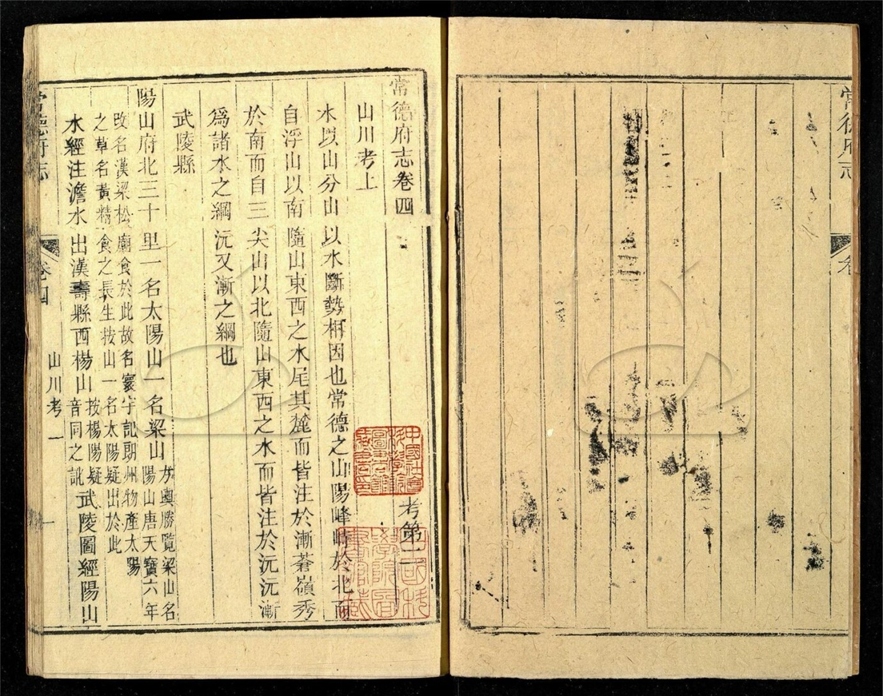 常德府志
卷
常德府志卷四 考第二
山川考上
水以山分山以水斷勢相因也常德之山陽峰峙於北而
自浮山以南隨山東西之水尾其麓而皆注於漸蒼嶺秀
於南而自三尖山以北隨山東西之水而皆注於沅沅漸
爲諸水之綱沅又漸之綱也
武陵縣
陽山府北三十里一名太陽山一名梁山
方輿勝覽梁山名
陽山唐天寶六年
改名漢梁松廟食於此故名寰宇記朗州物產太陽
之草名黃精食之長生按山一名太陽疑出於此
水經注澹水出漢壽縣西楊山
按楊陽疑
音同之訛
武陵圖經陽山
常德府志 卷四 山川考 一